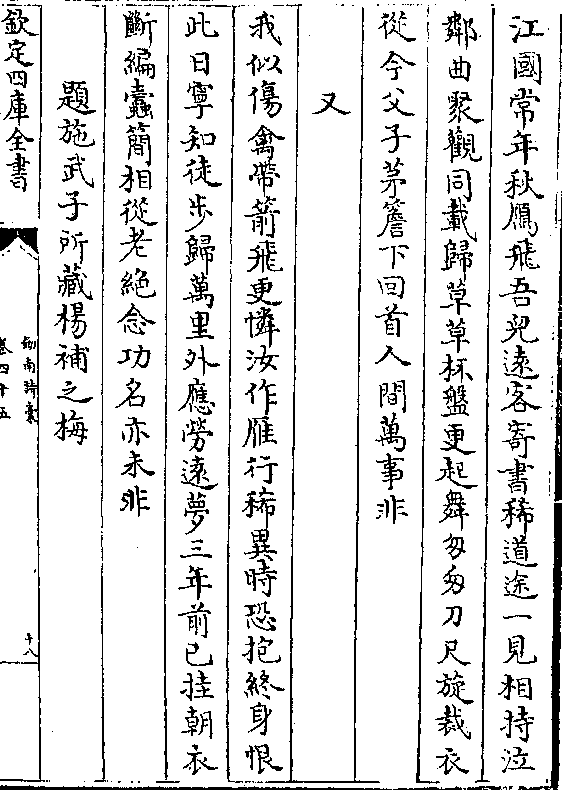 江國常年秋鴈飛吾兒遠客寄書稀道途一見相持泣
鄰曲聚觀同載歸草草杯盤更起舞匆匆刀尺旋裁衣
從今父子茅簷下回首人間萬事非
又
我似傷禽帶箭飛更憐汝作雁行稀異時恐抱終身恨
此日寧知徒步歸萬里外應勞遠夢三年前已挂朝衣
斷編蠹簡相從老絕念功名亦未非
題施武子所藏楊補之梅
欽定四庫全書
劒南詩稾
卷四十五
十八